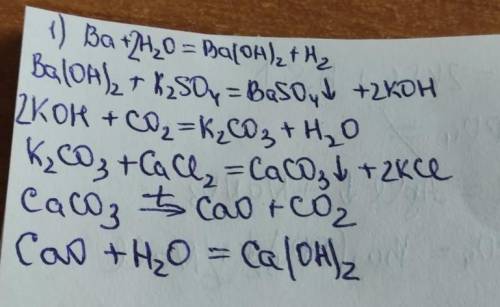 1) Ba + 2H₂O = Ba(OH)₂ + H₂
Ba(OH)₂ + K₂SO₄ = BaSO₄↓ + 2KOH
2KOH + CO₂ = K₂CO₃ + H₂O
K₂CO₃ + CaCl₂ = CaCO₃↓ + 2KCl
CaCO₃ t⇒ CaO + CO₂
CaO + H₂O = Ca(OH)₂